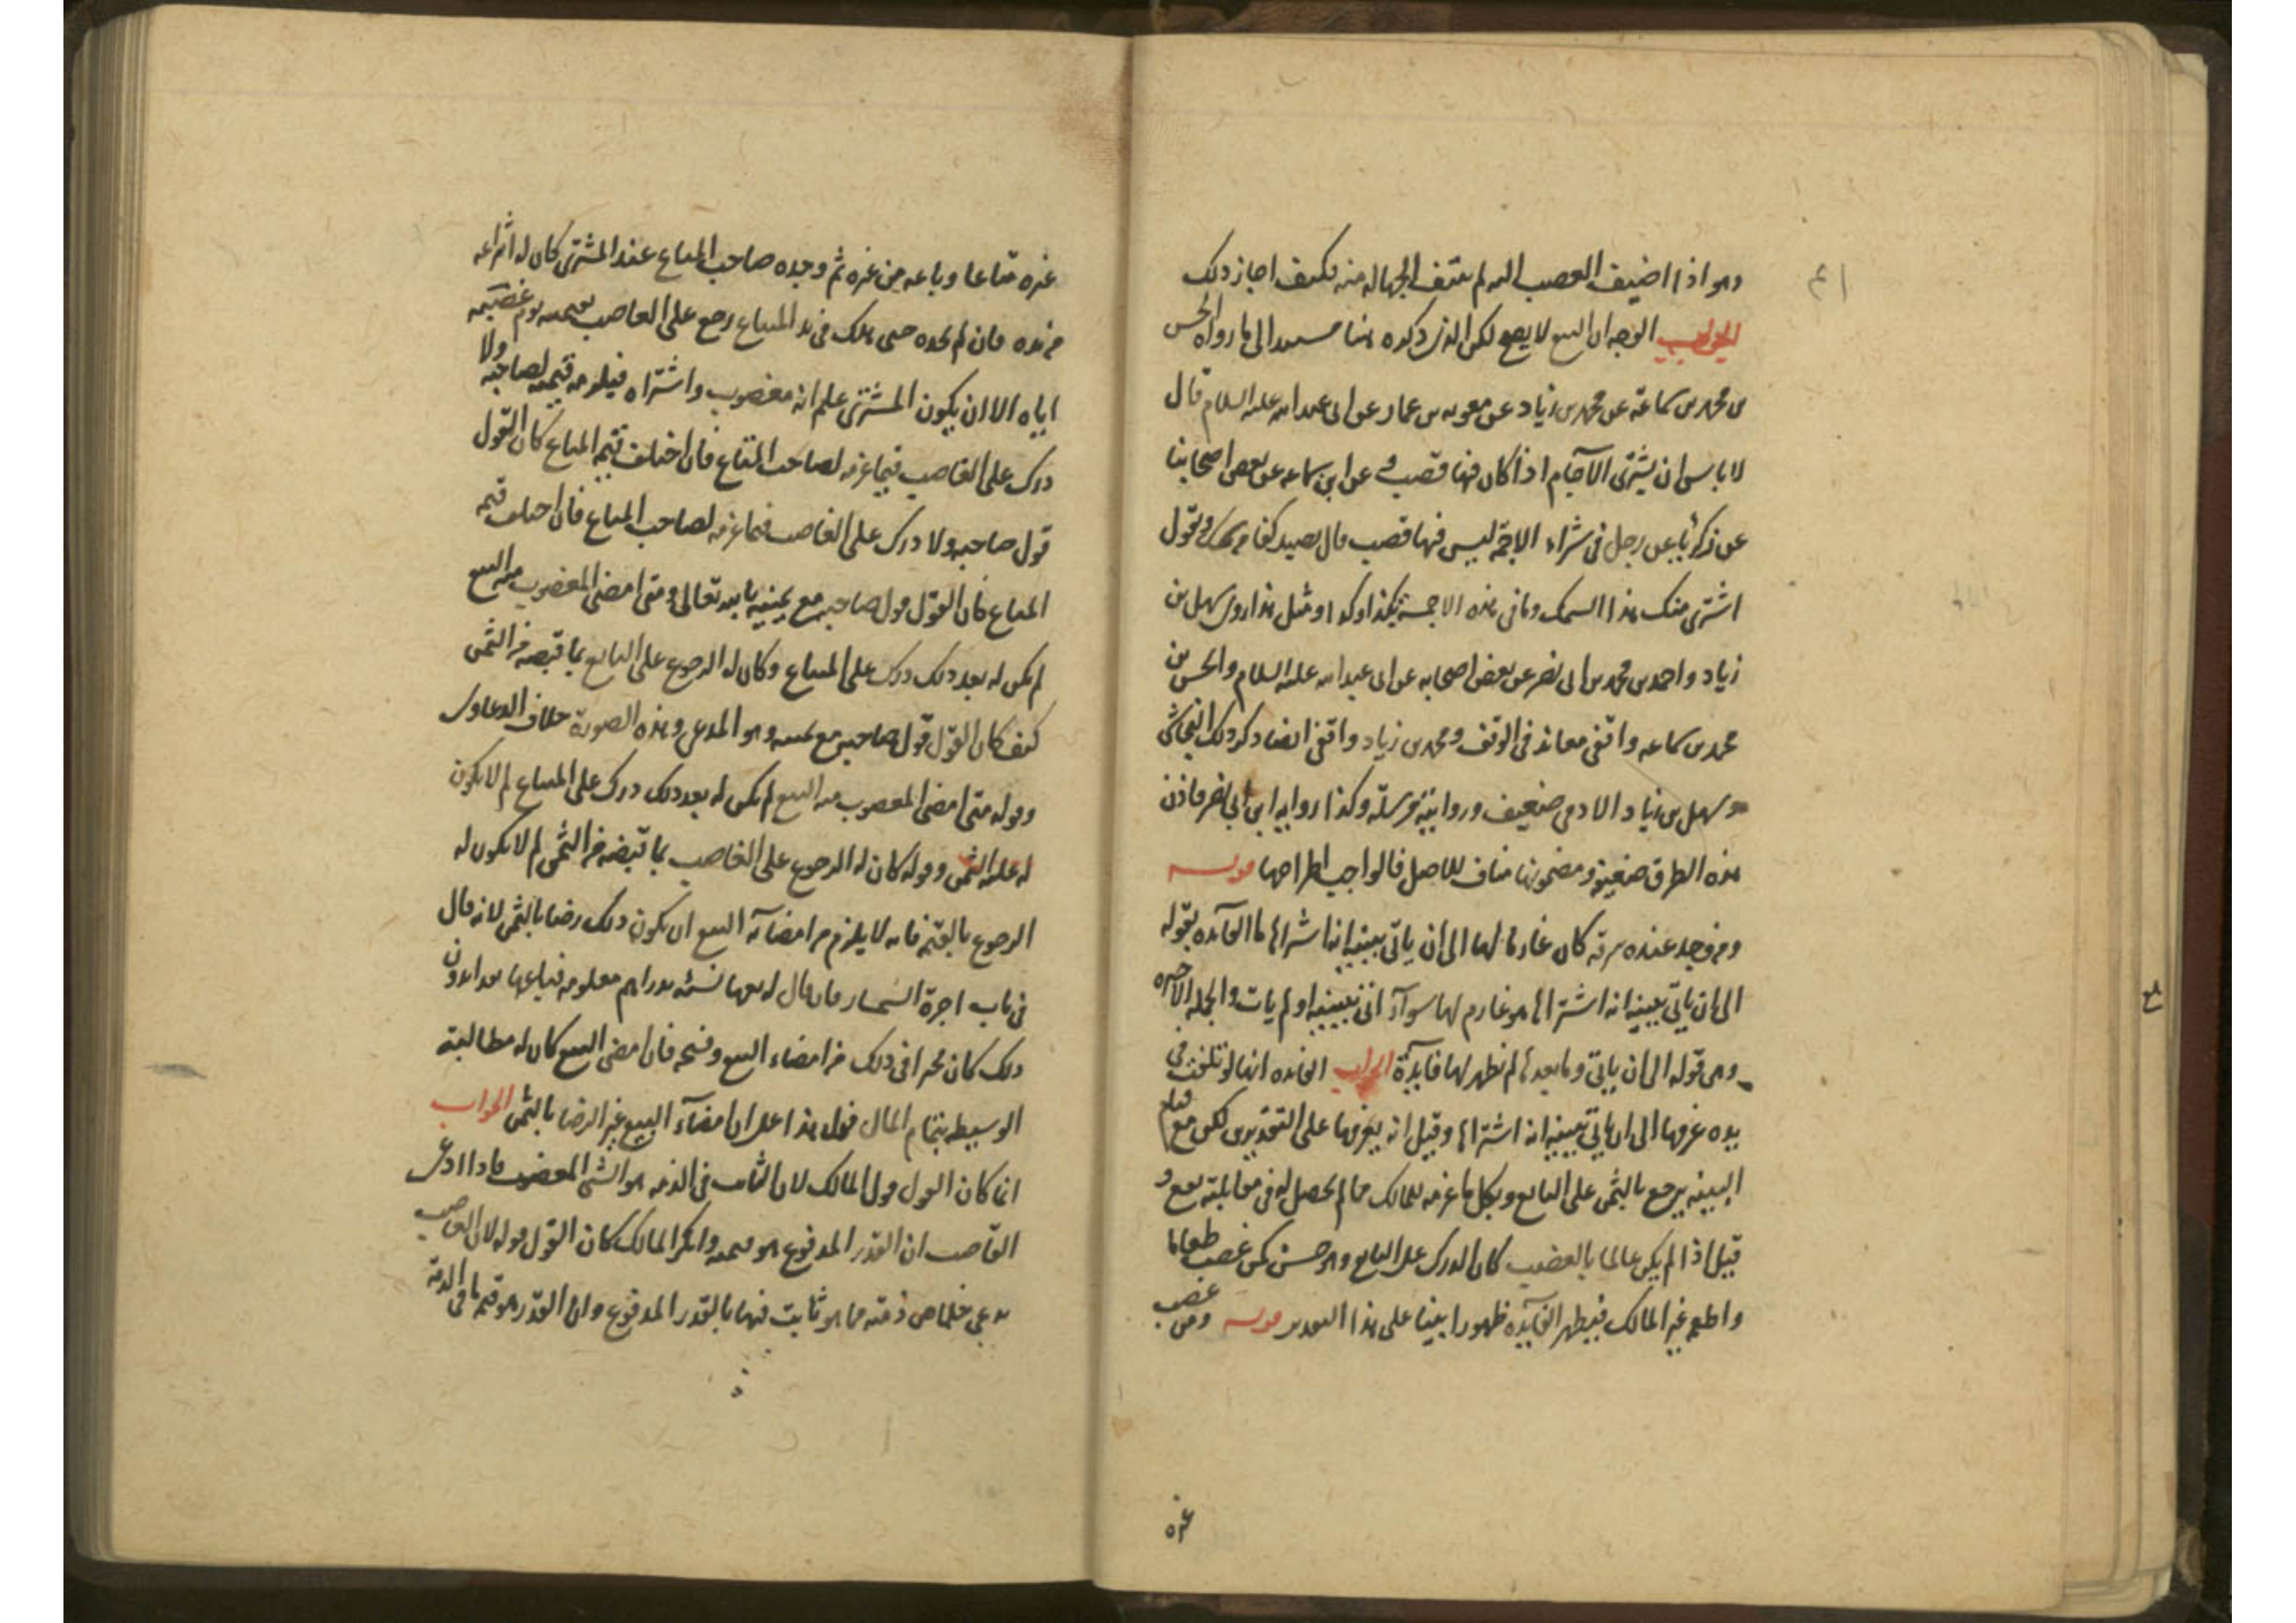 وهو اذا اضيف القصب اليه لم ينتف الجهاله منه فكيف اجاز ذلك
الجواب الوجه ان البيع لا يصح لكن الذى ذكره هنا مستند الى ما رواه الحسن
بن محمد بن سماعة عن محمد بن زياد عن معويه بن عمار عن ابى عبد الله عليه السلام قال
لا باس ان يشترى الآجام اذا كان فيها قصب و عن ابن سماعه عن بعض اصحابنا
عن زكريا عن رجل فى شراء الاجمة ليس فيها قصب قال يصيد كفا من سمك و يقول
اشترى منك هذا السمك وما فى هذه الاجمة بكذا وكذا ومثل هذا روى سهل بن
زياد واحمد بن محمد بن ابى نصر عن بعض اصحابه عن ابى عبد الله عليه السلام والحسن بن
محمد بن سماعه واقفى معاند فى الوقف ومحمد بن زياد واقفى ايضا ذكر ذلك النجاشى
و سهل بن زياد الادمى ضعيف وروايته مرسلة وكذا روايه ابن ابى نصر فاذن
هذه الطرق ضعيفة ومضمونها مناف للاصل فالواجب اطراحها قوله
ومن وجد عنده سرقة كان غارما لها الى ان ياتى ببينة انه اشتراها ما الفآئده بقوله
الى ان ياتى ببينة انه اشتراها هو غارم لها سوآء اتى ببينة او لم يات والجملة الاخيره
وهى قوله الى ان ياتى وما بعدها لم نظهر لها فآيدة الجواب الفائده انها لو تلفت فى
يده غرمها الى ان ياتى ببينة انه اشتراها وقيل انه يغرمها على التقديرين لكن مع قيام
البينه يرجع بالثمن على البايع وبكل ما غرمه للمالك مما لم يحصل له فى مقابلته نفع و
قيل اذا لم يكن عالما بالغصب كان الدرك على البايع وهو حسن كمن غصب طعاما
واطعم غير المالك فيظهر الفآئده ظهورا بينا على هذا التقدير قوله ومن غصب
غيره
غيره متاعا وباعه من غيره ثم وجده صاحب المتاع عند المشترى كان له انتزاعه
من يده فان لم يجده حتى هلك فى يد المبتاع رجع على الغاصب بقيمته يوم غصبه
اياه الا ان يكون المشترى علم انه مغصوب واشتراه فيلزمه قيمته لصاحبه ولا
درك على الغاصب فيما غرمه لصاحب المتاع فان اختلف قيمة المتاع كان القول
قول صاحبه ولا درك على الغاصب فيما غرمه لصاحب المتاع فان اختلف قيمة
المتاع كان القول قول صاحبه مع يمينه بالله تعالى ومتى امضى المغصوب منه البيع
لم يكن له بعد ذلك درك على المبتاع وكان له الرجوع على البايع بما قبضه من الثمن
كيف كان القول قول صاحبه مع يمينه وهو المدعى وهذه الصورة خلاف الدعاوى
وقوله متى امضى المغصوب منه البيع لم يكن له بعد ذلك درك على المبتاع لم لا يكون
له عليه الثمن وقوله كان له الرجوع على الغاصب بما قبضه من الثمن لم لا يكون له
الرجوع بالقيمة فانه لا يلزم من امضآئه البيع ان يكون ذلك رضا بالثمن لانه قال
فى باب اجرة السمسار فان قال له بعها نسية بدراهم معلومه فباعها نقدا بدون
ذلك كان مخيرا فى ذلك من امضاء البيع وفسخه فان امضى البيع كان له مطالبة
الوسيطه بتمام المال فدل هذا على ان امضآء البيع غير الرضا بالثمن الجواب
انما كان القول قول المالك لان الثابت فى الذمه هو الشئ المغضوب فاذا ادعى
الغاصب ان القدر المدفوع هو قيمته وانكر المالك كان القول قوله لان الغاصب
يدعى خلاص ذمته مما هو ثابت فيها بالقدر المدفوع وان القدر هو قيمة ما فى الذمة